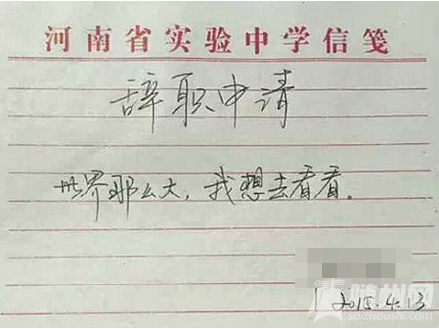 河南省实验中学信笺
辞职申请
世界那么大,我想去看看.
2015.4.13
随州网
suizhoushi.com